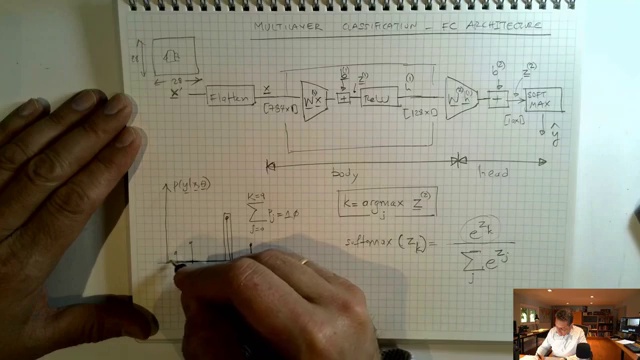 MULTILAYER CLASSIFICATION - FC ARCHITECTURE
28
28
X
Flatten
x
[784x1]
W⁽¹⁾x
b⁽¹⁾
+
z⁽¹⁾
ReLU
h⁽¹⁾
[128x1]
W⁽²⁾h⁽¹⁾
b⁽²⁾
+
z⁽²⁾
[10x1]
SOFT
MAX
ŷ
body
head
P(y|x,θ)
K=9
∑ P_j = 1.0
j=0
K = argmax z⁽²⁾
j
softmax (z_k) = e^{z_k}
∑ e^{z_j}
j